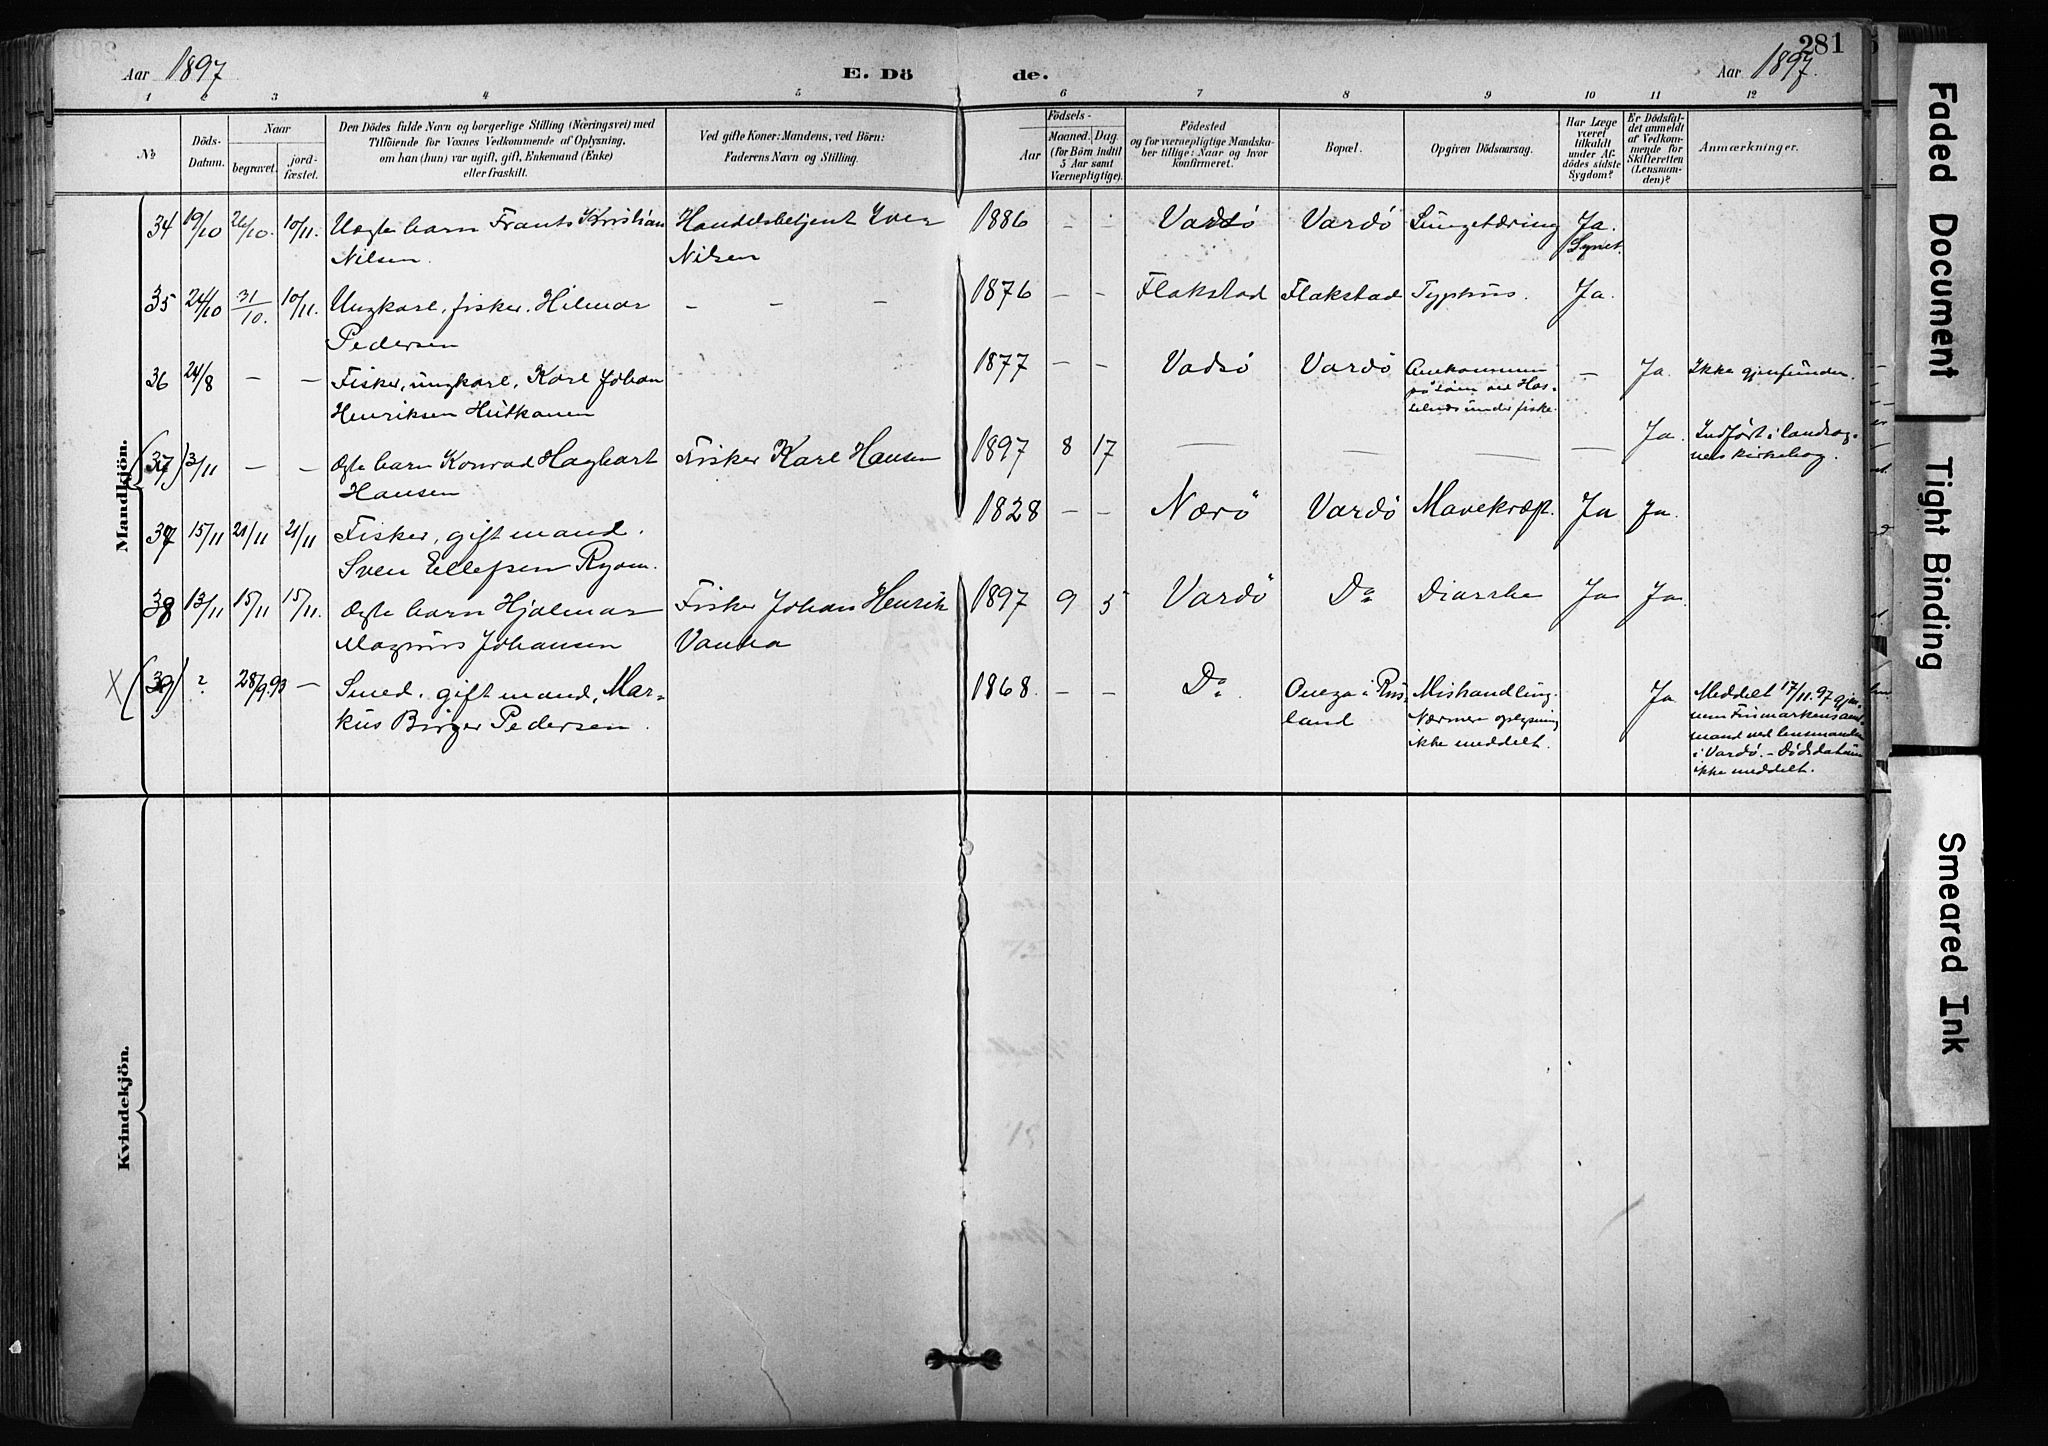 281
Aar 1897
E. Dö
de.
Aar 1897.
1 2 3 4 5 6 7 8 9 10 11 12
№
Döds-
Datum.
Naar
begravet.
jord-
fæstet.
Den Dödes fulde Navn og borgerlige Stilling (Næringsvei) med
Tilföiende for Voxnes Vedkommende af Oplysning,
om han (hun) var ugift, gift, Enkemand (Enke)
eller fraskilt.
Ved gifte Koner: Mandens, ved Börn:
Faderens Navn og Stilling.
Födsels-
Aar
Maaned. Dag.
(for Börn indtil
5 Aar samt
Værnepligtige).
Födested
og for værnepligtige Mandska-
ber tillige: Naar og hvor
konfirmeret.
Bopæl.
Opgiven Dödsaarsag.
Har Læge
været
tilkaldt
under Af-
dödes sidste
Sygdom?
Er Dödsfal-
det anmeldt
af Vedkom-
mende for
Skifteretten
(Lensman-
den)?
Anmærkninger.
Mandkjön.
34 19/10 26/10. 10/11. Uægte barn Frants Kristian Handelsbetjent Iver 1886 - - Vardö Vardö Lungetæring Ja.
Nilsen. Nilsen Synet.
35 24/10 31/10. 10/11. Ungkarl, fisker. Hilmar - - - 1876 - - Flakstad Flakstad Typhus. Ja.
Pedersen
36 24/8 - - Fisker, ungkarl, Karl Johan 1877 - - Vadsö Vardö Omkommen - Ja. Ikke gjenfunden.
Henriksen Hutkonen under fiske.
(37) 3/11 - - Ægte barn Konrad Hagbart Fisker Karl Hansen 1897 8 17 - - - - Ja. Indfört i landsog-
Hansen nets kirkebog.
37 15/11 21/11 21/11 Fisker, gift mand. 1828 - - Nærö Vardö Mavekræft. Ja Ja.
Sven Ellefsen Ryom.
38 13/11 15/11 15/11. Ægte barn Hjalmar Fisker Johan Henrik 1897 9 5 Vardö Do Diarrhe Ja Ja.
Magnus Johansen
X (39) ? 28/9.93 - Smed. gift mand, Mar- 1868. - - Do. Onega i Rus- Mishandling. Ja Meddelt 17/11.97 gjen-
kus Birger Pedersen. land Nærmere oplysning nem Finmarkens amt-
ikke meddelt. mand ved lensmanden
i Vardö. - Dödsdatum
ikke meddelt.
Kvindekjön.
Faded Document
Tight Binding
Smeared Ink